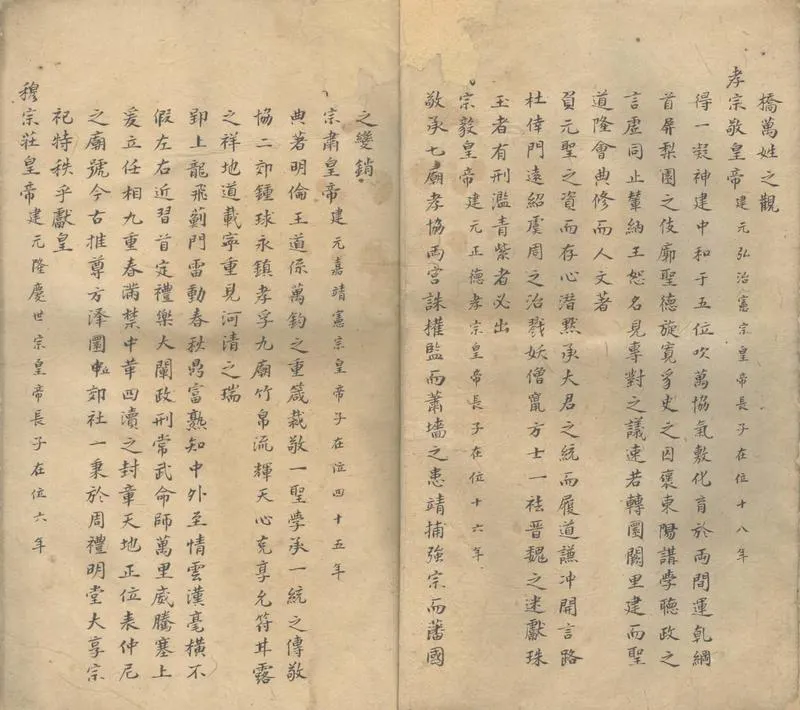 橋萬姓之觀
孝宗敬皇帝建元弘治憲宗皇帝長子在位十八年
得一凝神建中和于五位吹萬協氣敷化育於両間運乹綱
首屏梨園之伎廓聖德旋寛豸史之囚褒東陽講學聽政之
言虛同止輦納王恕名見專對之議速若轉圜闕里建而聖
道隆會典修而人文著
貟元聖之資而存心潜黙承大君之統而履道謙冲開言路
杜倖門遠紹虞周之治戮妖僧竄方士一袪晋魏之迷獻珠
玉者有刑濫青紫者必出
宗毅皇帝建元正德孝宗皇帝長子在位十六年
敬承七廟孝協两宫誅權監而蕭墻之患靖捕強宗而藩國
之變銷
宗肅皇帝建元嘉靖憲宗皇帝子在位四十五年
典著明倫王道係萬鈞之重箴裁敬一聖學承一統之傳敬
協二郊鍾球永鎮孝孚九廟竹帛流輝天心克享允符甘露
之祥地道載寧重見河清之瑞
郢上龍飛薊門雷動春秋鼎富熟知中外至情雲漢毫橫不
假左右近習首定禮樂大闡政刑常武命師萬里威騰塞上
爰立任相九重春滿禁中華四瀆之封章天地正位表仲尼
之廟號今古推尊方澤圜丘郊社一秉於周禮明堂大享宗
祀特秩乎獻皇
穆宗莊皇帝建元隆慶世宗皇帝長子在位六年